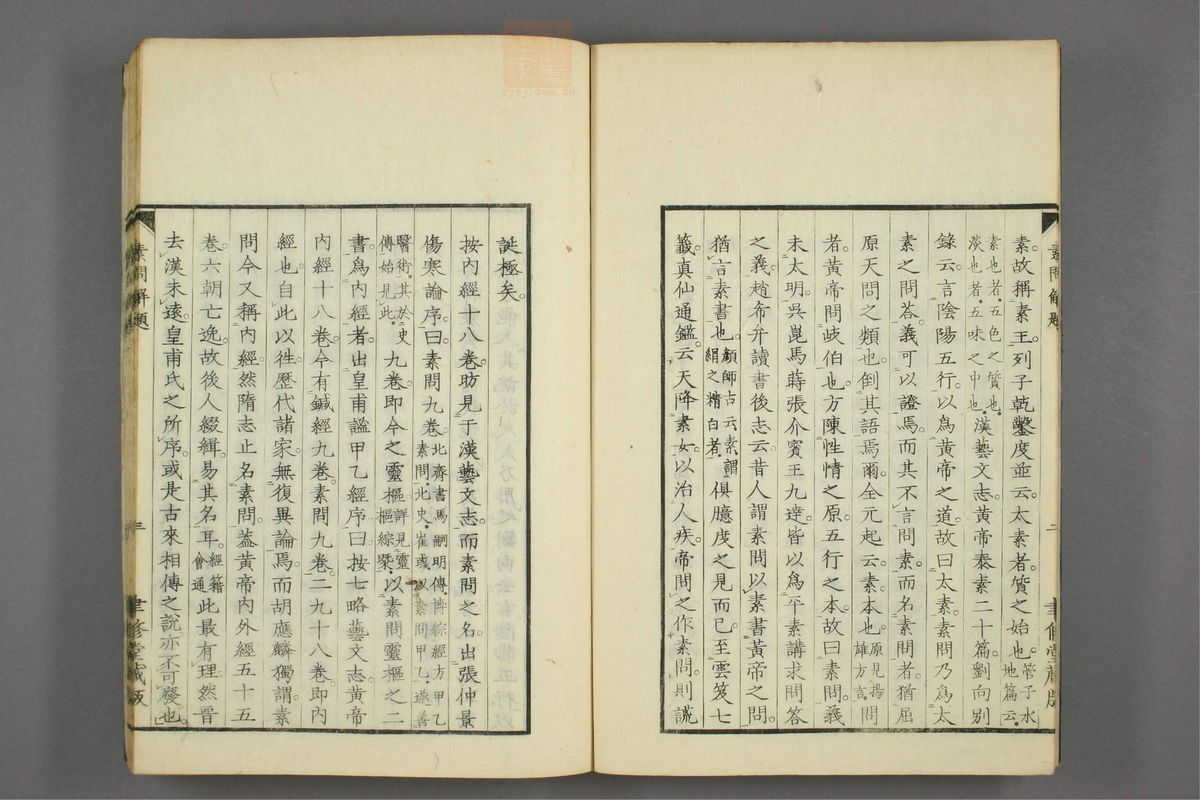 素。故稱素王。列子乾鑿度並云。太素者。質之始也。管子水地篇云。
素也者。五色之質也。淡也者。五味之中也。漢藝文志。黃帝泰素二十篇。劉向別
錄云。言陰陽五行。以爲黃帝之道。故曰太素。素問乃爲太
素之問答。義可以證焉。而其不言問素。而名素問者。猶屈
原天問之類也。倒其語焉爾。全元起云。素。本也。原見揚雄方言問
者。黃帝問岐伯也。方陳性情之原。五行之本。故曰素問。義
未太明。吳崑馬蒔張介賓王九達。皆以爲平素講求問答
之義。趙希弁讀書後志云。昔人謂素問以素書黃帝之問。
猶言素書也。顏師古云。素謂絹之精白者。俱臆度之見而已。至雲笈七
籤。真仙通鑑。云天降素女。以治人疾。帝問之。作素問。則謊
誕極矣。
按內經十八卷。昉見于漢藝文志。而素問之名。出張仲景
傷寒論序。曰。素問九卷。北齊書馬嗣明傳。博綜經方。甲乙素問。北史。崔彧以素問甲乙。遂善
醫術。其於史傳始見此。九卷即今之靈樞。詳見靈樞綜槩。以素問靈樞之二
書。爲內經者。出皇甫謐甲乙經序。曰。按七略藝文志。黃帝
內經十八卷。今有鍼經九卷。素問九卷。二九十八卷。即內
經也。自此以徃。歷代諸家。無復異論焉。而胡應麟獨謂。素
問今又稱內經。然隋志止名素問。葢黃帝內外經五十五
卷。六朝亡逸。故後人綴緝。易其名耳。經籍會通此最有理。然晉
去漢未遠。皇甫氏之所序。或是古來相傳之說。亦不可廢也。
素問解題
二
聿修堂藏版
素問解題
三
聿修堂藏版
zyoj.com.cn